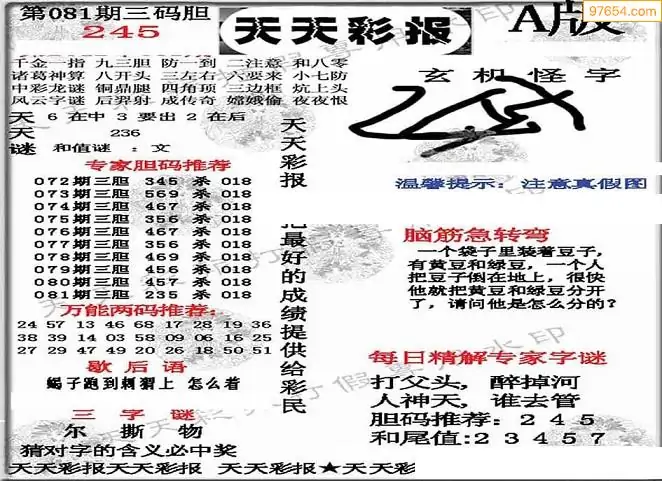 第081期三码胆
245
天天彩报
A版
97654.com
千金一指 九三胆 防一到 二注意 和八零
诸葛神算 八开头 三左右 六要来 小七防
中彩龙谜 铜鼎腿 四角顶 三边框 坑上头
风云字谜 后羿射 成传奇 嫦娥偷 夜夜恨
天 6 在中 3 要出 2 在后
天 236
谜 和值谜 : 文
专家胆码推荐
072期三胆 345 杀 018
073期三胆 569 杀 018
074期三胆 467 杀 018
075期三胆 356 杀 018
076期三胆 467 杀 018
077期三胆 356 杀 018
078期三胆 469 杀 018
079期三胆 456 杀 018
080期三胆 457 杀 018
081期三胆 235 杀 018
万能两码推荐:
24 57 13 46 68 17 28 19 36
38 39 14 03 58 09 06 16 25
27 29 47 49 20 26 18 50 51
歇后语
蝎子跑到刺猬上 怎么着
三字谜
尔 撕 物
猜对字的含义必中奖
天天彩报
把最好的成绩提供给彩民
玄机怪字
温馨提示: 注意真假图
脑筋急转弯
一个袋子里装着豆子,
有黄豆和绿豆,一个人
把豆子倒在地上,很快
他就把黄豆和绿豆分开
了,请问他是怎么分的?
每日精解专家字谜
打父头, 醉掉河
人神天, 谁去管
胆码推荐: 2 4 5
和尾值:2 3 4 5 7
天天彩报天天彩报 天天彩报★天天彩